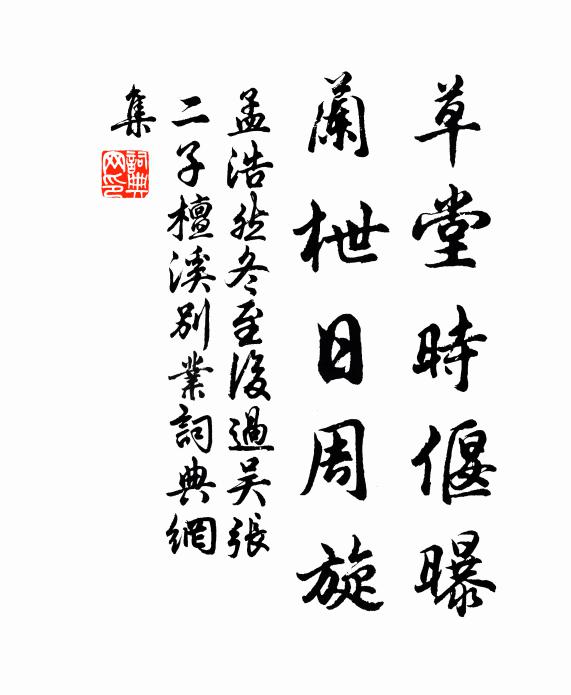 草堂時偃曝
蘭枻日周旋
孟浩然冬至後過吴張
二子檀溪別業詞典網
集
詞典網印